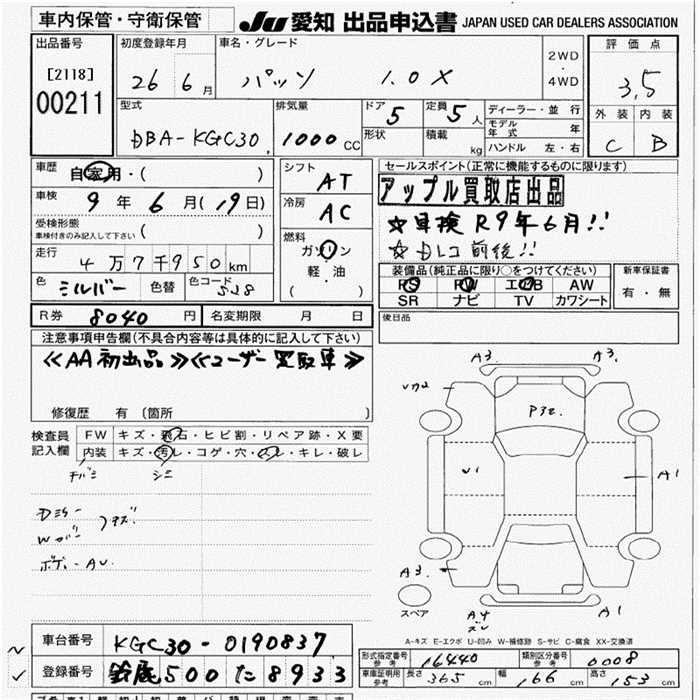 車内保管・守衛保管
JU 愛知 出品申込書 JAPAN USED CAR DEALERS ASSOCIATION
出品番号
[2118]
00211
初度登録年月
26 6 月
車名・グレード
パッソ 1.0X
2WD
・
4WD
評価点
3.5
外装 内装
C B
型式
DBA-KGC30
排気量
1000 CC
ドア 5
形状
定員 5 人
積載 kg
ディーラー・並 行
モデル年式 年
ハンドル 左・右
車歴
自家用・( )
車検
9 年 6 月(19日)
受検形態
車検付きのみ記入して下さい
( )
走行
4万7千950km
色
シルバー
色替
色コード
S28
シフト
AT
冷房
AC
燃料
ガソリン
軽・油
( )
セールスポイント(正常に機能するものに限ります)
アップル買取店出品
☆車検 R9年6月!!
☆Dレコ 前後!!
装備品(純正品に限り○をつけてください)
PS PW エアB AW
SR ナビ TV カワシート
新車保証書
有・無
後日品
R券 8040 円 名変期限 月 日
注意事項申告欄(不具合内容等は具体的に記入して下さい)
≪AA初出品≫≪ユーザー買取車≫
修復歴 有 (箇所 )
検査員
記入欄
FW キズ・飛石・ヒビ割・リペア跡・X要
内装 キズ・汚レ・コゲ・穴・スレ・キレ・破レ
Dミラー
Wガバ
ボデー AU
A3. A3.
P3z.
U1
A1
A3.
スペア
A4
A1
A-キズ E-エクボ U-凹み W-補修跡 S-サビ C-腐食 XX-交換済
車台番号
KGC30-0190837
登録番号
鈴鹿 500 た 8933
形式指定番号
参考
16440
類別区分番号
参考
0008
車庫証明用
参考
長さ 365 cm
幅 166 cm
高さ 153 cm